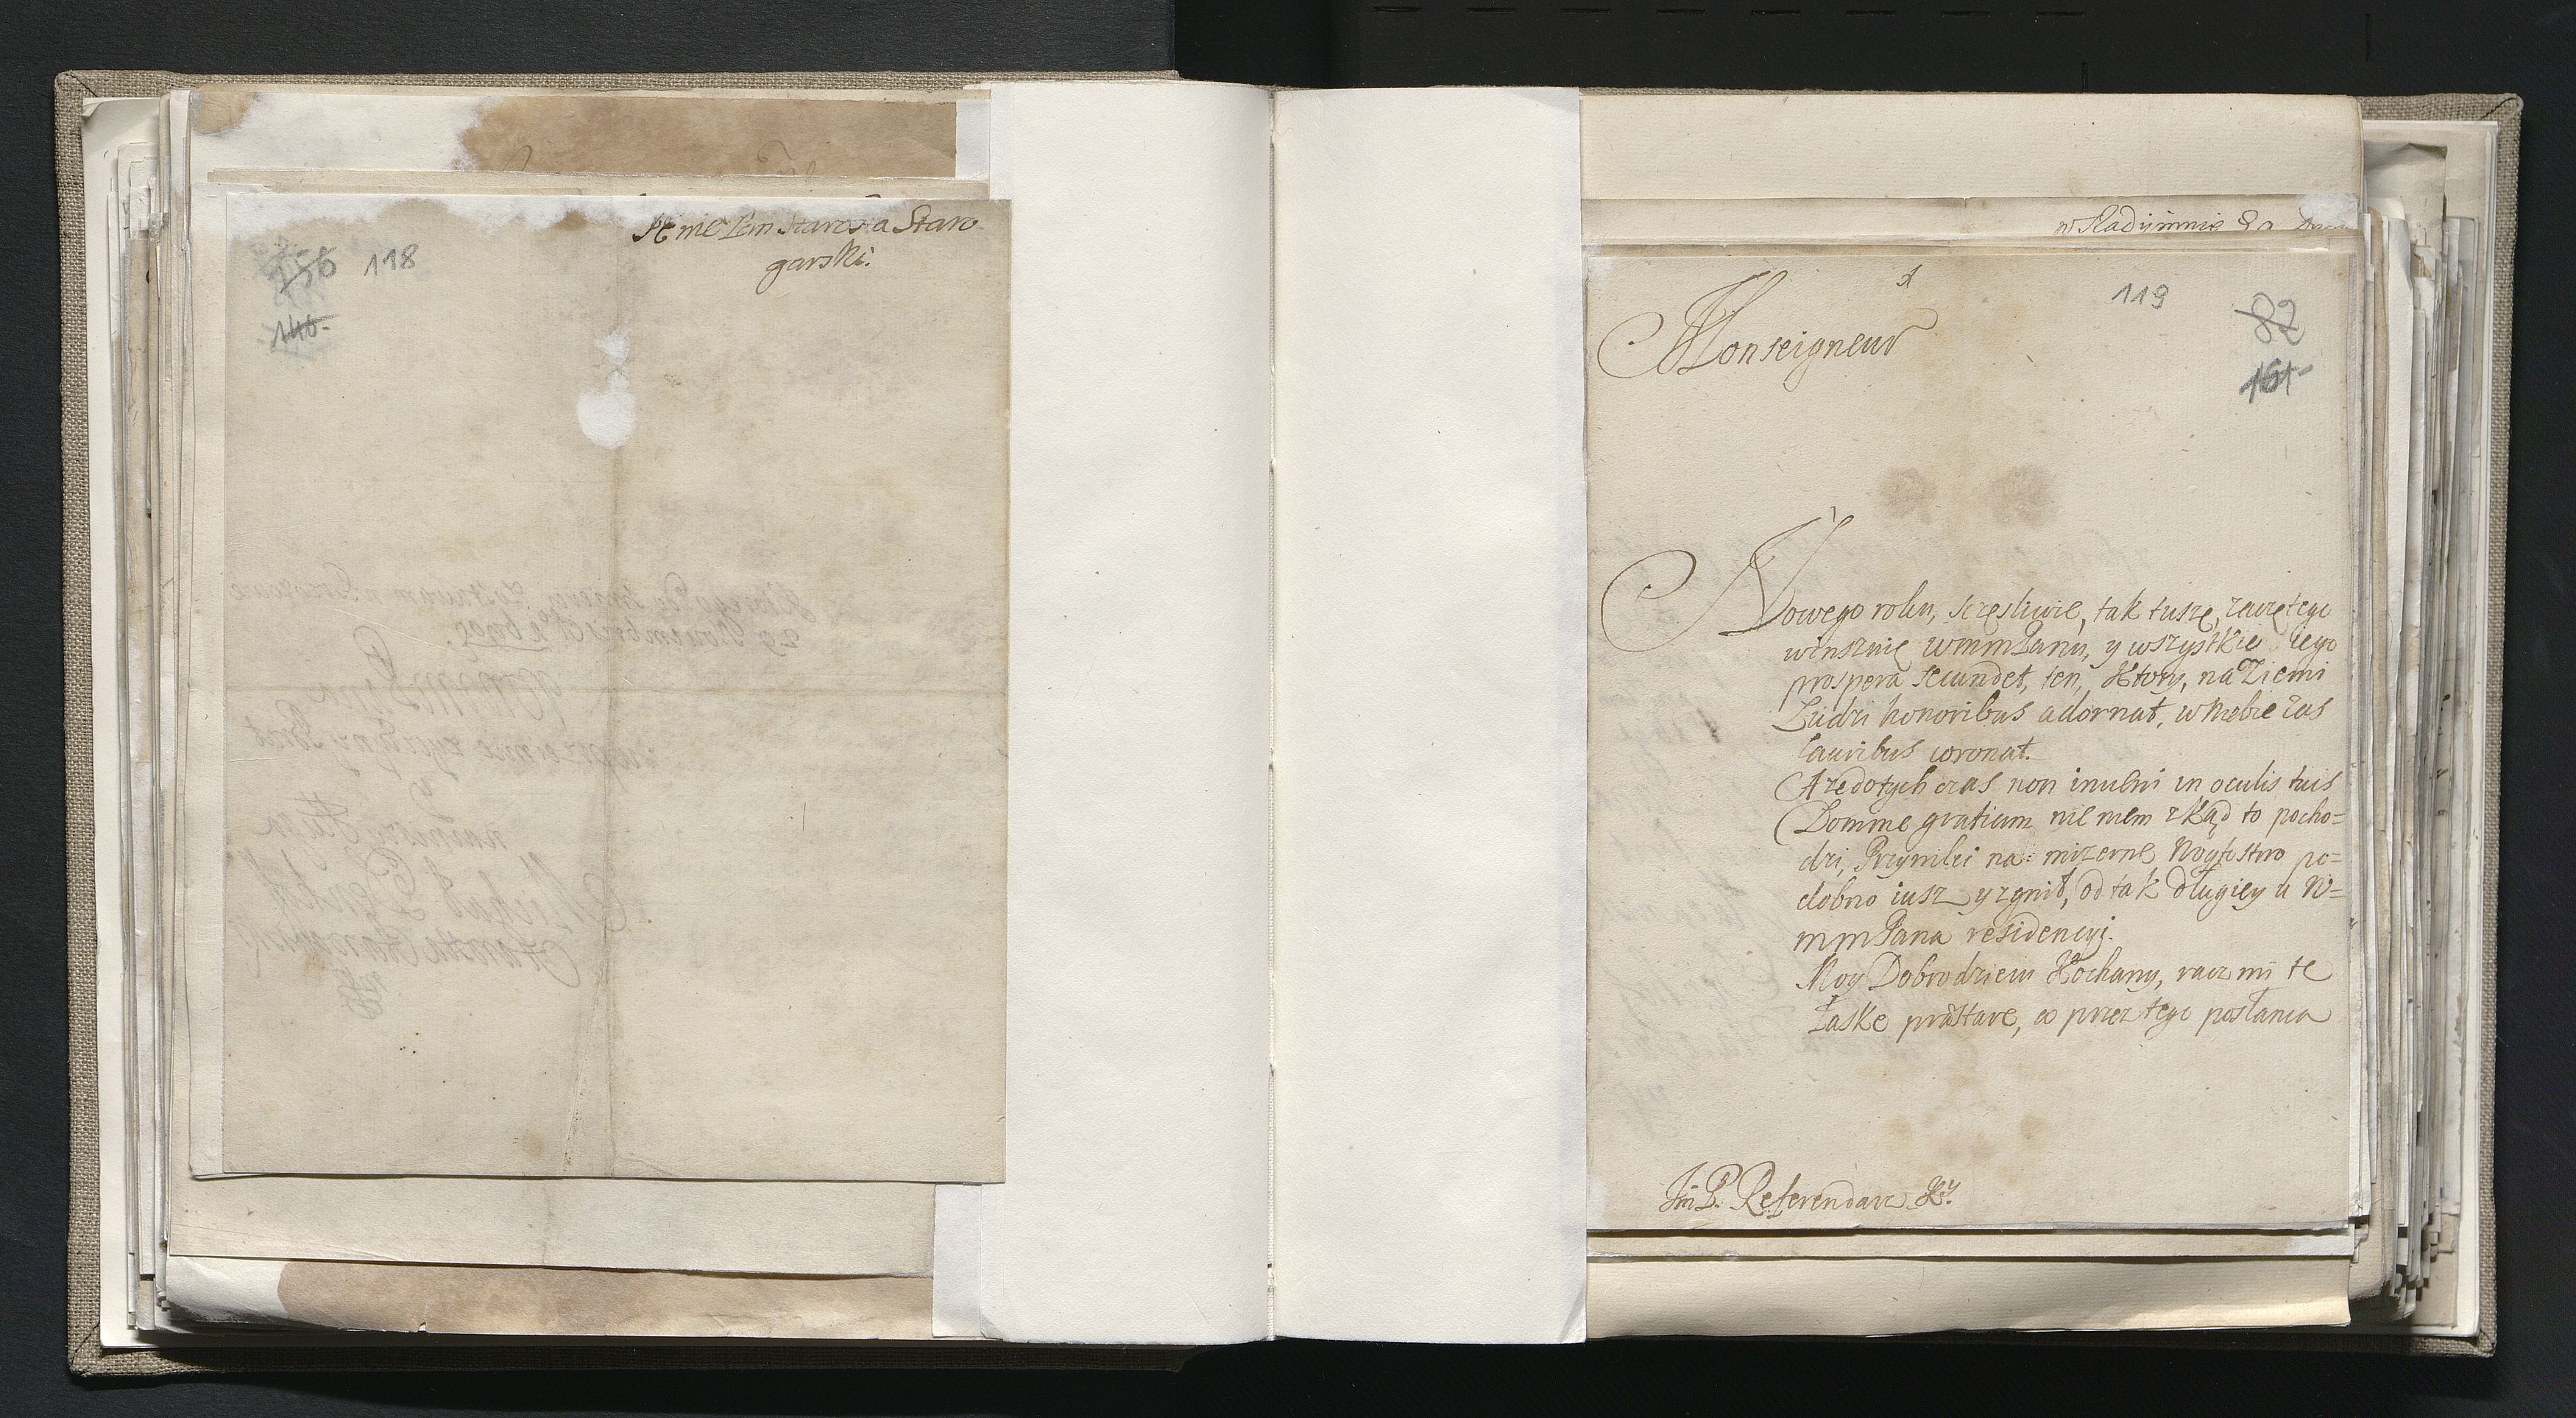 Je mc Pan Starosta Staro
garski.
156 118
140
w Radijmnie
119
82
161
Monseigneur
Nowego roku, sczęsliwie, tak tuszę, zawziętego
winsznię WmmPanu, y wszystkie iego
prospera secundet, ten, Ktory, na Ziemi
Ludzi honoribus adornat, w Niebie zas
lauribus coronat.
A ze dotych czas non inueni in oculis tuis
Domine gratiam nie wiem zkąd to pocho=
dzi, Przywilei na mizerne Woytostwo po=
dobno iusz y zgnił, od tak długiey u W=
mmPana residencyi.
Moy Dobrodzieiu Kochany, racz mi te
Łaske prestare, co przez tego posłanca
Jm P. Referendarz Kr.